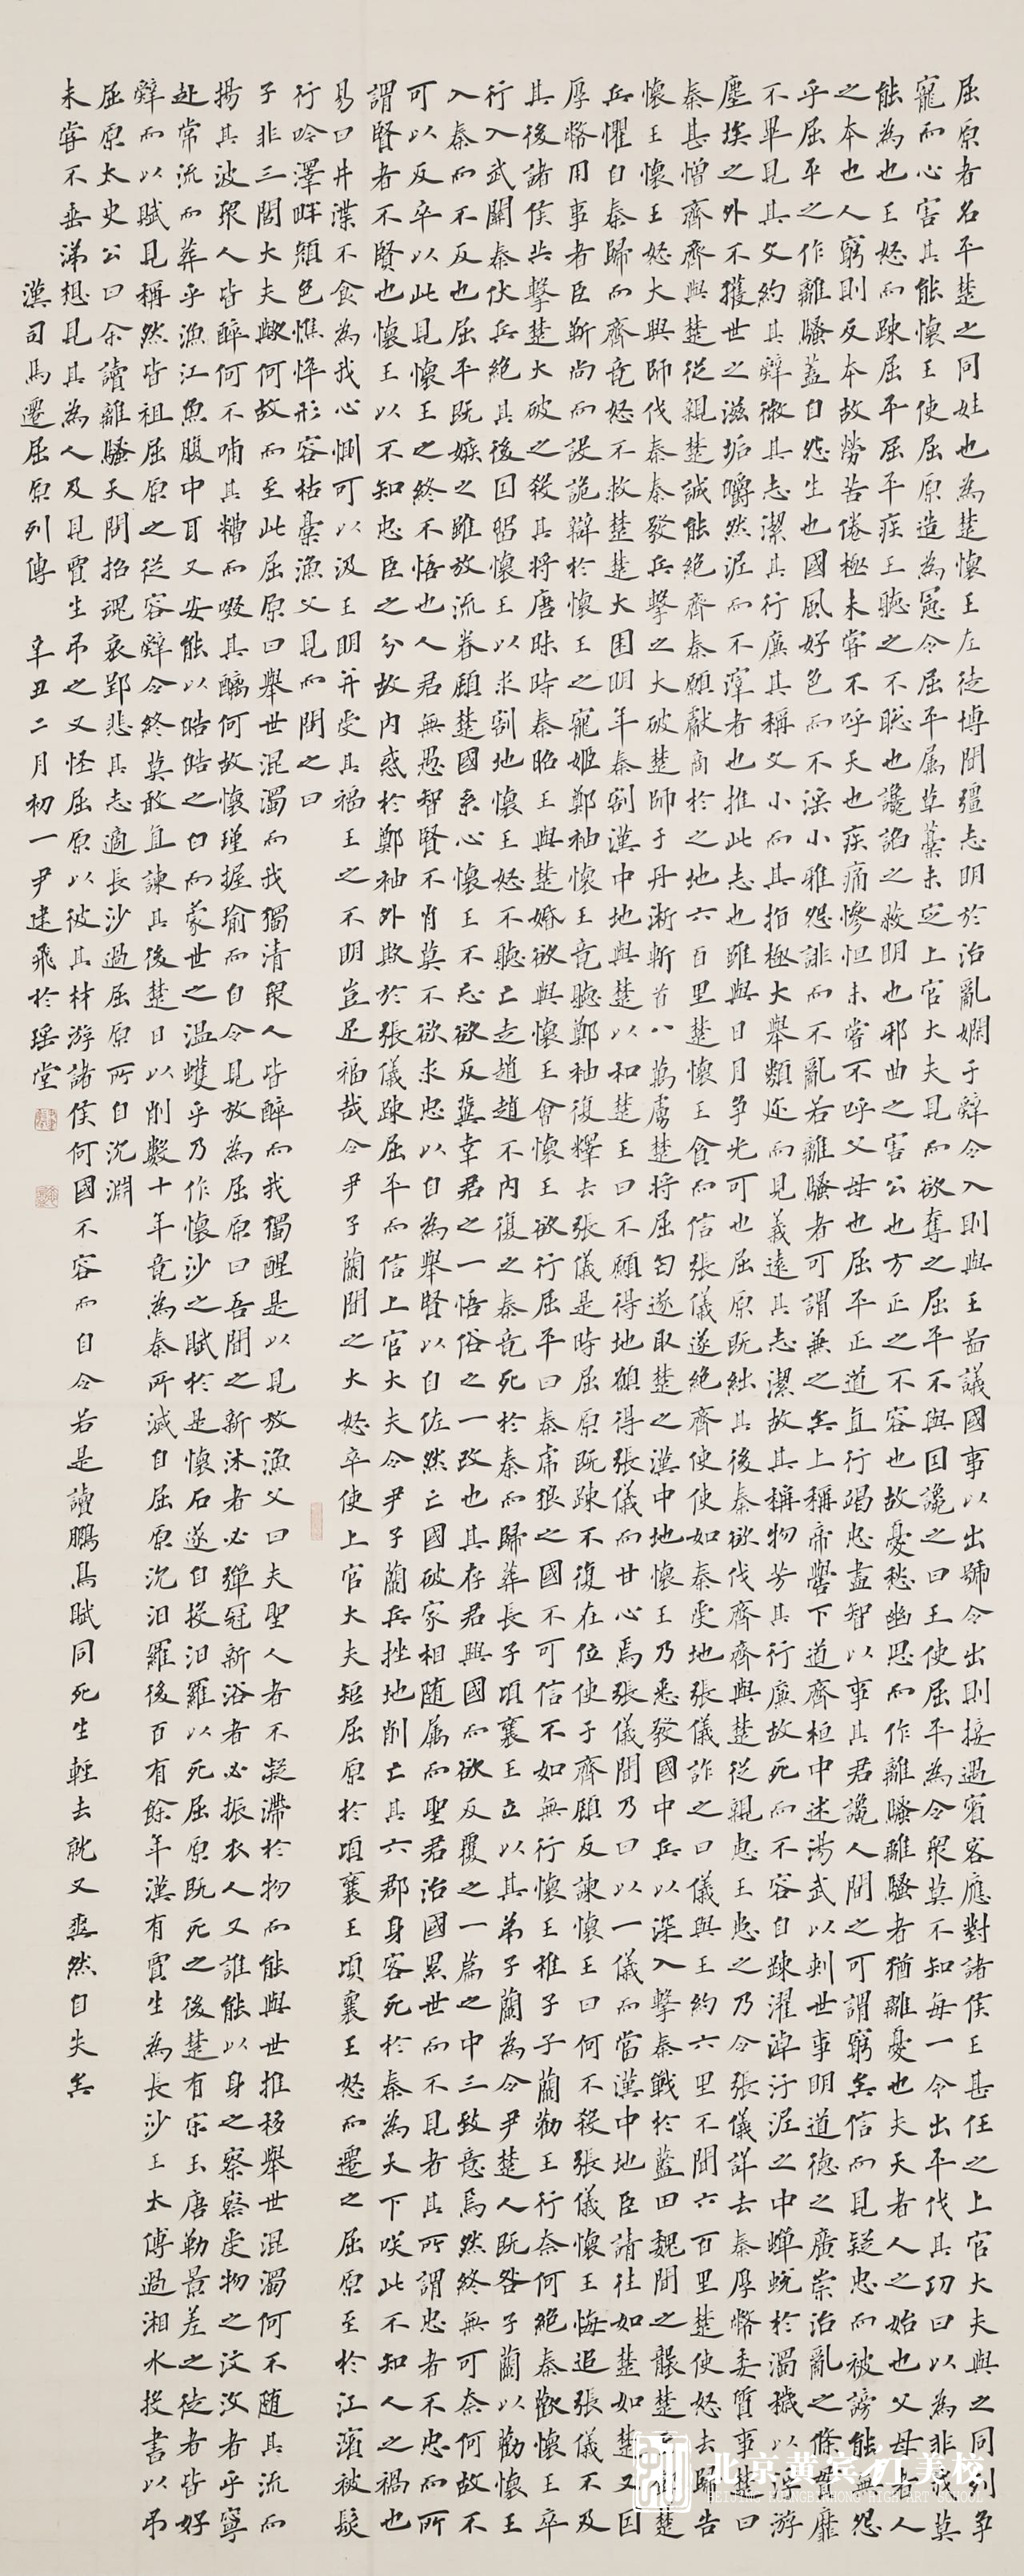 屈原者名平楚之同姓也為楚懷王左徒博聞彊志明於治亂嫻于辭令入則與王啚議國事以出號令出則接遇賓客應對諸侯王甚任之上官大夫與之同列爭
寵而心害其能懷王使屈原造為憲令屈平属草藁未定上官大夫見而欲奪之屈平不與因讒之曰王使屈平為令眾莫不知每一令出平伐其功曰以為非我莫
能為也王怒而疎屈平屈平疾王聽之不聡也讒諂之蔽明也邪曲之害公也方正之不容也故憂愁幽思而作離騷離騷者猶離憂也夫天者人之始也父母者人
之本也人窮則反本故勞苦倦極未甞不呼天也疾痛慘怛未嘗不呼父母也屈平正道直行竭忠盡智以事其君讒人間之可謂窮矣信而見疑忠而被謗能無怨
乎屈平之作離騷蓋自怨生也國風好色而不淫小雅怨誹而不亂若離騷者可謂兼之矣上稱帝嚳下道齊桓中述湯武以刺世事明道德之廣崇治亂之條貫靡
不畢見其文約其辭微其志潔其行廉其稱文小而其指極大舉類邇而見義遠其志潔故其稱物芳其行廉故死而不容自疎濯淖汙泥之中蟬蛻於濁穢以浮游
塵埃之外不獲世之滋垢嚼然泥而不滓者也推此志也雖與日月争光可也屈原既絀其後秦欲伐齊齊與楚從親惠王患之乃令張儀詳去秦厚幣委質事楚曰
秦甚憎齊齊與楚從親楚誠能絕齊秦願獻商於之地六百里楚懷王貪而信張儀遂絕齊使使如秦受地張儀詐之曰儀與王約六里不聞六百里楚使怒去歸告
懷王懷王怒大興師伐秦秦發兵擊之大破楚師于丹淅斬首八萬虜楚將屈匄遂取楚之漢中地懷王乃悉發國中兵以深入擊秦戰於藍田魏聞之襲楚至鄧楚
兵懼自秦歸而齊竟怒不救楚楚大困明年秦割漢中地與楚以和楚王曰不願得地願得張儀而甘心焉張儀聞乃曰以一儀而當漢中地臣請往如楚如楚又因
厚幣用事者臣靳尚而設詭辯於懷王之寵姬鄭袖懷王竟聽鄭袖復釋去張儀是時屈原既疎不復在位使于齊顧反諫懷王曰何不殺張儀懷王悔追張儀不及
其後諸侯共擊楚大破之殺其將唐眜時秦昭王與楚婚欲與懷王會懷王欲行屈平曰秦虎狼之國不可信不如無行懷王稚子子蘭勸王行奈何絕秦歡懷王卒
行入武關秦伏兵絕其後因留懷王以求割地懷王怒不聽亡走趙趙不內復之秦竟死於秦而歸葬長子頃襄王立以其弟子蘭為令尹楚人既咎子蘭以勸懷王
入秦而不反也屈平既嫉之雖放流眷顧楚國系心懷王不忘欲反冀幸君之一悟俗之一改也其存君興國而欲反覆之一篇之中三致意焉然終無可奈何故不
可以反卒以此見懷王之終不悟也人君無愚智賢不肖莫不欲求忠以自為舉賢以自佐然亡國破家相随属而聖君治國累世而不見者其所謂忠者不忠而所
謂賢者不賢也懷王以不知忠臣之分故內惑於鄭袖外欺於張儀疎屈平而信上官大夫令尹子蘭兵挫地削亡其六郡身客死於秦為天下咲此不知人之禍也
易曰井渫不食為我心惻可以汲王明并受其福王之不明豈足福哉令尹子蘭聞之大怒卒使上官大夫短屈原於頃襄王頃襄王怒而遷之屈原至於江濱被髮
行吟澤畔顏色憔悴形容枯槁漁父見而問之曰
子非三閭大夫歟何故而至此屈原曰舉世混濁而我獨清眾人皆醉而我獨醒是以見放漁父曰夫聖人者不凝滯於物而能與世推移舉世混濁何不随其流而
揚其波眾人皆醉何不哺其糟而啜其醨何故懷瑾握瑜而自令見放為屈原曰吾聞之新沐者必彈冠新浴者必振衣人又誰能以身之察察受物之汶汶者乎寧
赴常流而葬乎漁江魚腹中耳又安能以皓皓之白而蒙世之溫蠖乎乃作懷沙之賦於是懷石遂自投汨羅以死屈原既死之後楚有宋玉唐勒景差之徒者皆好
辭而以賦見稱然皆祖屈原之從容辭令終莫敢直諫其後楚日以削數十年竟為秦所滅自屈原沉汨羅後百有餘年漢有賈生為長沙王太傅過湘水投書以弔
屈原太史公曰余讀離騷天問招魂哀郢悲其志適長沙過屈原所自沉淵
未嘗不垂涕想見其為人及見賈生吊之又怪屈原以彼其材游諸侯何國不容而自令若是讀鵬鳥賦同死生輕去就又爽然自失矣
漢司馬遷屈原列傳 辛丑二月初一尹建飛於瑶堂
北京黄宾虹美校
BEIJING HUANGBINHONG HIGH ART SCHOOL